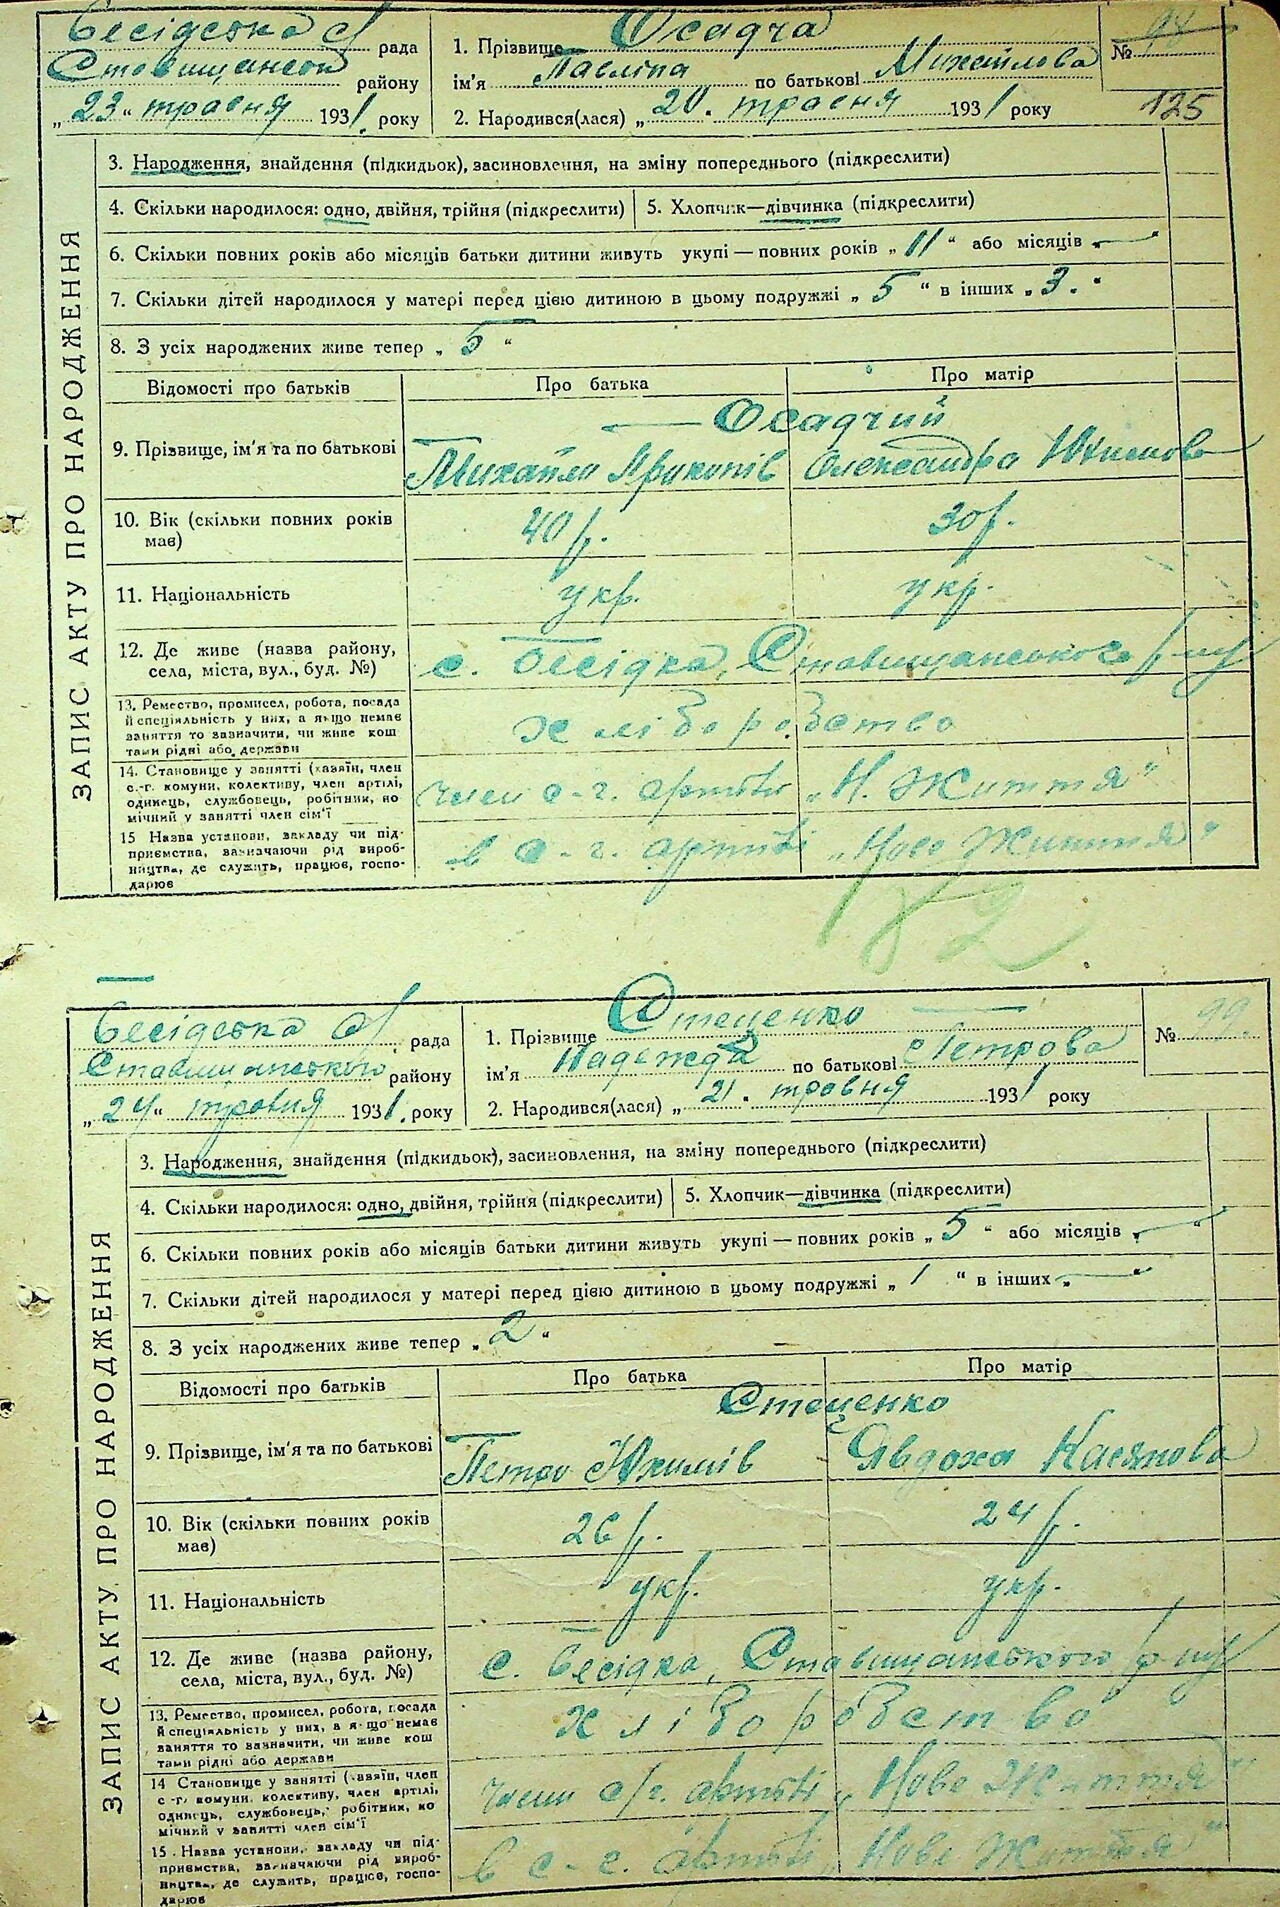 Бесідська с/ рада
Ставищанськ району
„23“ травня 1931. року
1. Прізвище Осадча
ім'я Павліна по батькові Михайлова
2. Народився(лася) „20. травня 1931 року
№ 98
125
ЗАПИС АКТУ ПРО НАРОДЖЕННЯ
3. Народження, знайдення (підкидьок), засиновлення, на зміну попереднього (підкреслити)
4. Скільки народилося: одно, двійня, трійня (підкреслити) 5. Хлопчик—дівчинка (підкреслити)
6. Скільки повних років або місяців батьки дитини живуть укупі — повних років „11“ або місяців „—“
7. Скільки дітей народилося у матері перед цією дитиною в цьому подружжі „5“ в інших „3.“
8. З усіх народжених живе тепер „5“
Відомості про батьків Про батька Про матір
9. Прізвище, ім'я та по батькові
— Осадчий
Михайло Прикопів Олександра Юхимова
10. Вік (скільки повних років має) 40 р. 30 р.
11. Національність укр. укр.
12. Де живе (назва району, села, міста, вул., буд. №)
с. Бесідка, Ставищанського р-ну
13. Ремество, промисел, робота, посада й спеціяльність у них, а якщо немає заняття то зазначити, чи живе кош тами рідні або держави
хліборобство
14. Становище у занятті (хазяїн, член с.-г. комуни, колективу, член артілі, одинець, службовець, робітник, по мічний у занятті член сім'ї
член с-г. артілі „Н. Життя“
15 Назва установи, закладу чи під- приємства, вазначаючи рід вироб- ництва, де служить, працює, госпо- дарює
в с-г. артілі „Нове Життя“
182
Бесідська с/ рада
Ставищанського району
„24“ травня 1931. року
1. Прізвище Стеценко
ім'я Надежда по батькові Петрова
2. Народився(лася) „21. травня 1931 року
№ 99.
ЗАПИС АКТУ ПРО НАРОДЖЕННЯ
3. Народження, знайдення (підкидьок), засиновлення, на зміну попереднього (підкреслити)
4. Скільки народилося: одно, двійня, трійня (підкреслити) 5. Хлопчик—дівчинка (підкреслити)
6. Скільки повних років або місяців батьки дитини живуть укупі — повних років „5“ або місяців „—“
7. Скільки дітей народилося у матері перед цією дитиною в цьому подружжі „1“ в інших „—“
8. З усіх народжених живе тепер „2“
Відомості про батьків Про батька Про матір
9. Прізвище, ім'я та по батькові
Стеценко
Петро Юхимів Явдоха Касянова
10. Вік (скільки повних років має) 26 р. 24 р.
11. Національність укр. укр.
12. Де живе (назва району, села, міста, вул., буд. №)
с. Бесідка, Ставищанського р-ну
13. Ремество, промисел, робота, посада й спеціяльність у них, а якщо немає заняття то зазначити, чи живе кош тами рідні або держави
хліборобство
14 Становище у занятті (хазяїн, член с-г. комуни, колективу, член артілі, одинець, службовець, робітник, по мічний у занятті член сім'ї
член с/г. артілі „Нове Життя“
15. Назва установи, закладу чи під- приємства, вазначаючи рід вироб- ництва, де служить, працює, госпо- дарює
в с-г. артілі „Нове Життя“